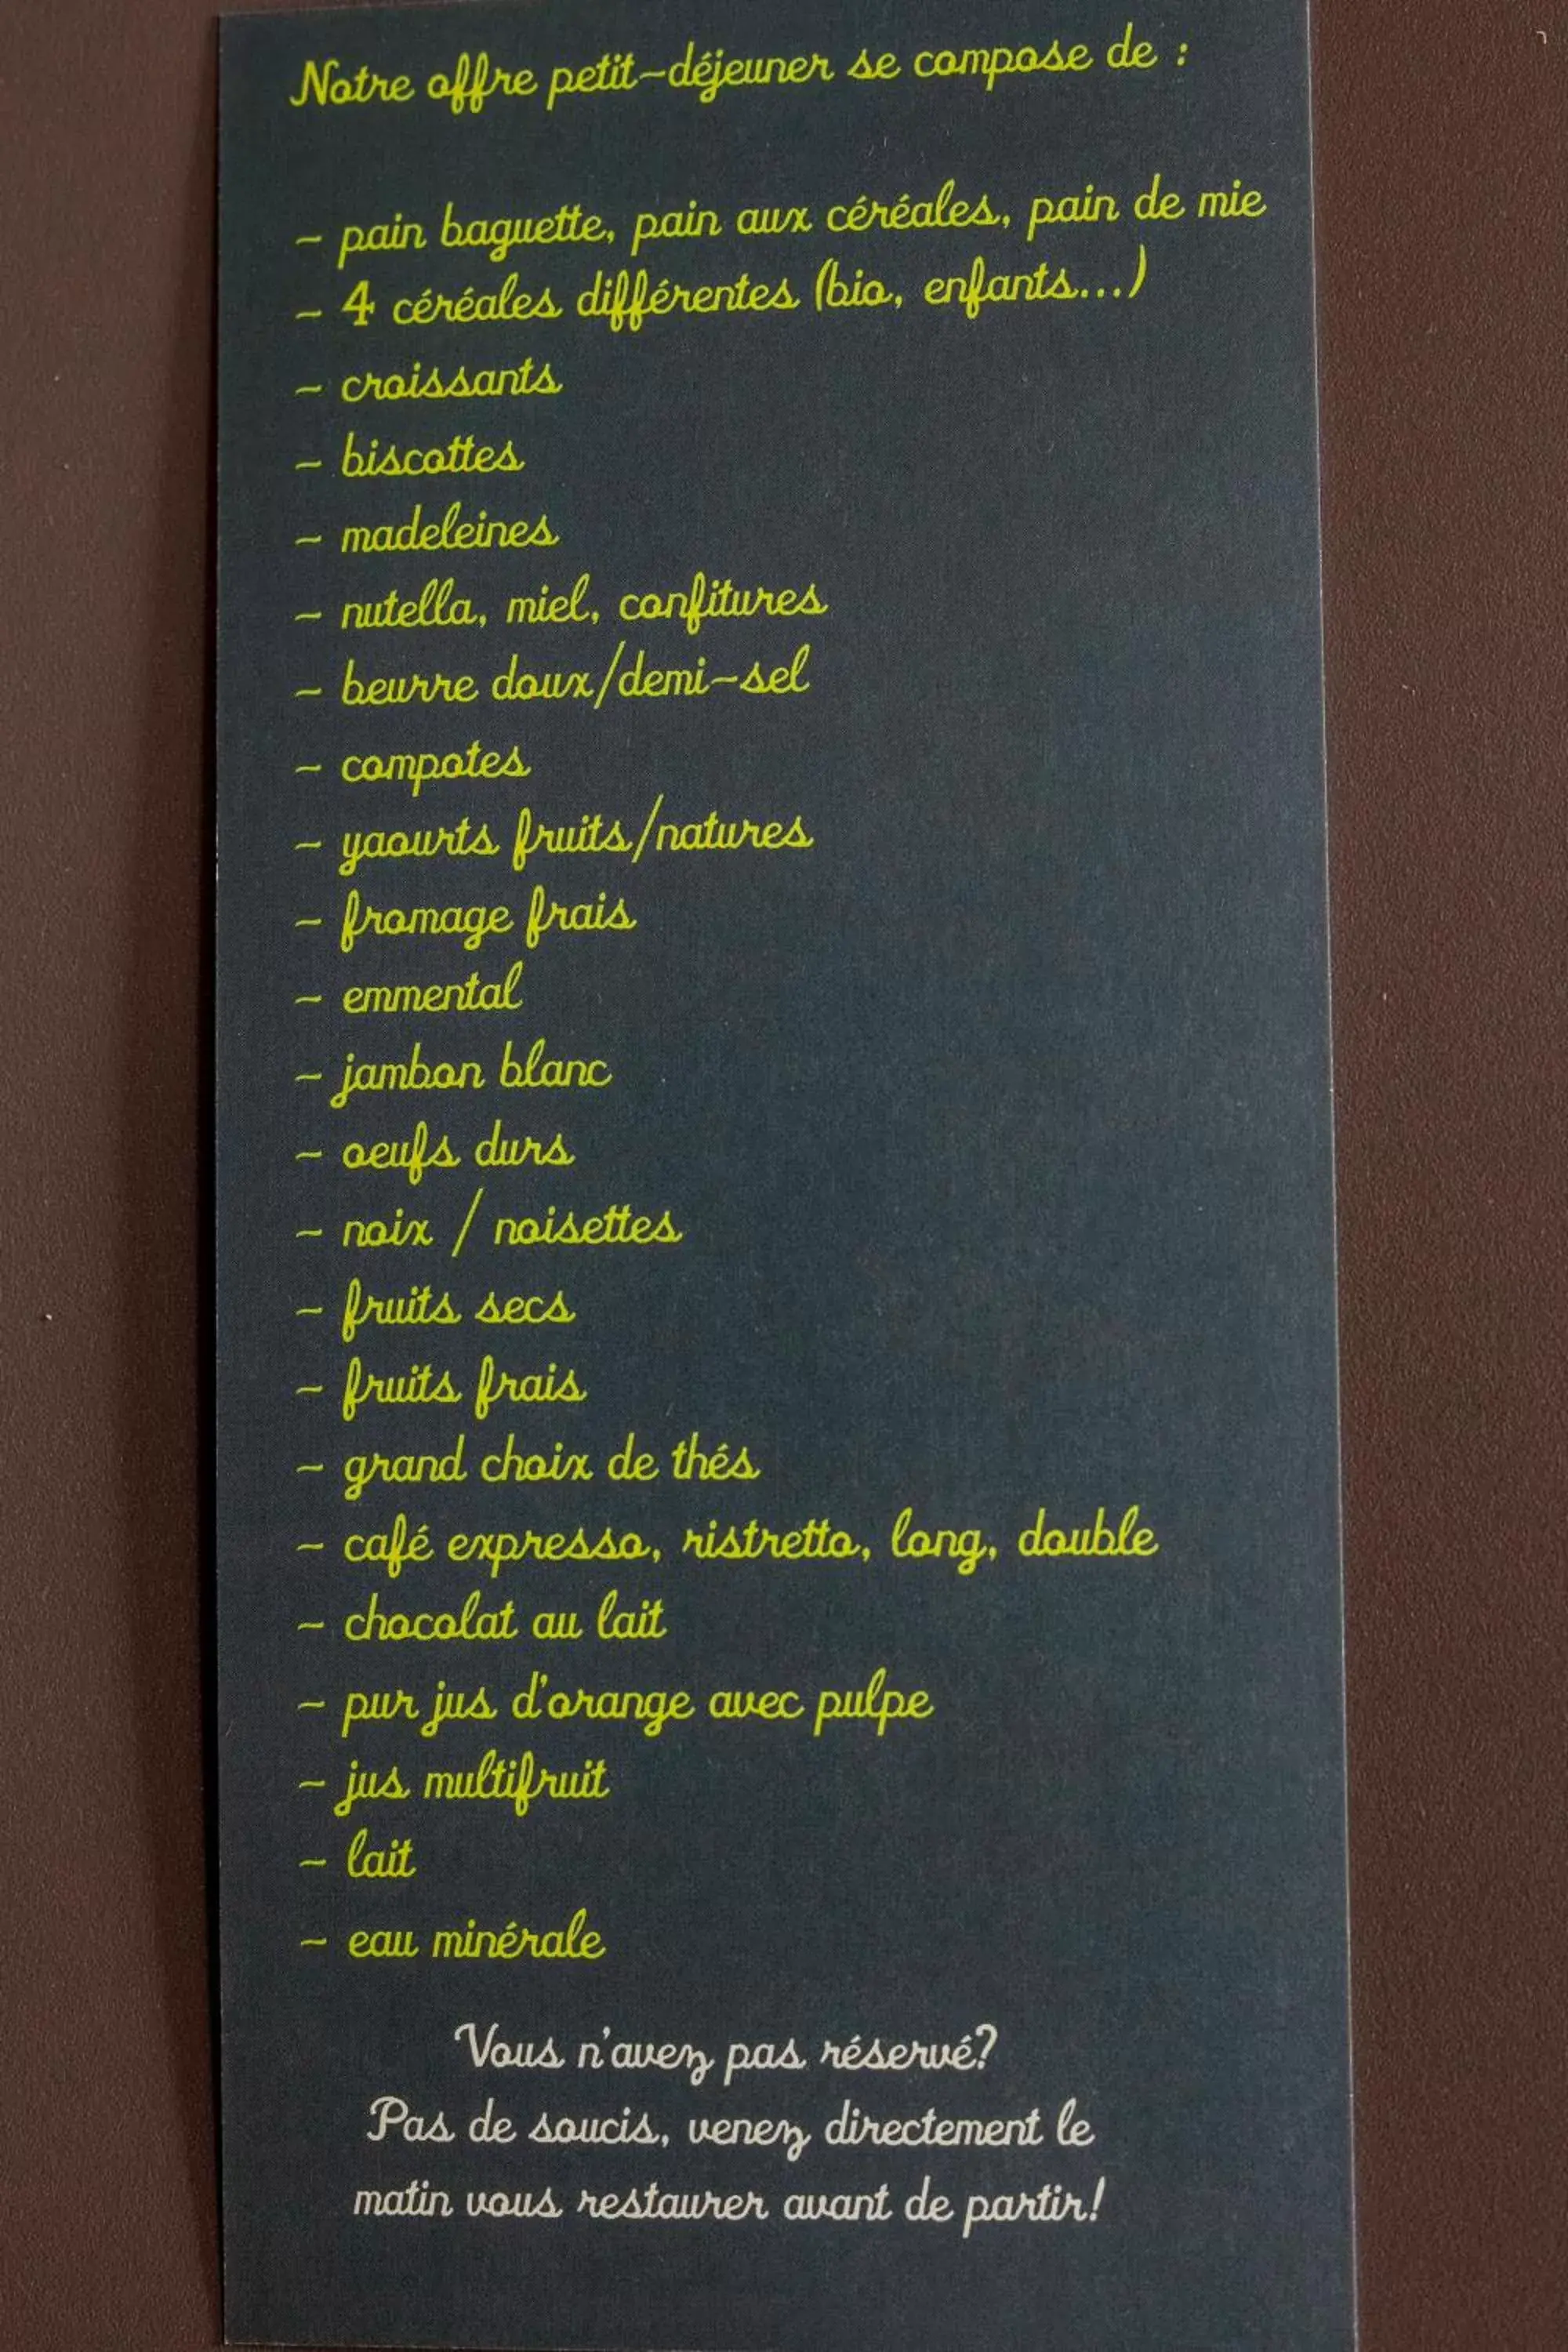 Notre offre petit-déjeuner se compose de :
- pain baguette, pain aux céréales, pain de mie
- 4 céréales différentes (bio, enfants...)
- croissants
- biscottes
- madeleines
- nutella, miel, confitures
- beurre doux/demi-sel
- compotes
- yaourts fruits/natures
- fromage frais
- emmental
- jambon blanc
- oeufs durs
- noix / noisettes
- fruits secs
- fruits frais
- grand choix de thés
- café expresso, ristretto, long, double
- chocolat au lait
- pur jus d'orange avec pulpe
- jus multifruit
- lait
- eau minérale
Vous n'avez pas réservé?
Pas de soucis, venez directement le
matin vous restaurer avant de partir!